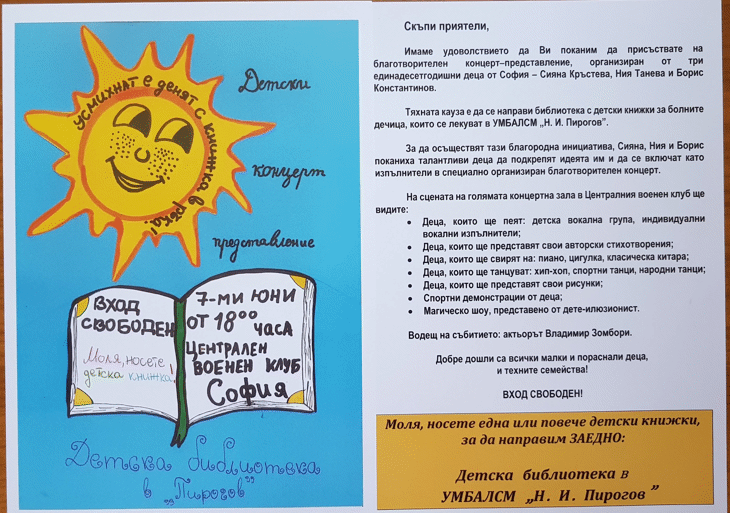 усмихнат е денят с книжка в ръка!
Детски
концерт
представление
ВХОД
СВОБОДЕН
Моля, носете
детска книжка!
7-ми юни
от 18°° часа
Централен
военен клуб
София
Детска библиотека
в „Пирогов"
Скъпи приятели,
Имаме удоволствието да Ви поканим да присъствате на
благотворителен концерт–представление, организиран от три
единадесетгодишни деца от София – Сияна Кръстева, Ния Танева и Борис
Константинов.
Тяхната кауза е да се направи библиотека с детски книжки за болните
дечица, които се лекуват в УМБАЛСМ „Н. И. Пирогов".
За да осъществят тази благородна инициатива, Сияна, Ния и Борис
поканиха талантливи деца да подкрепят идеята им и да се включат като
изпълнители в специално организиран благотворителен концерт.
На сцената на голямата концертна зала в Централния военен клуб ще
видите:
• Деца, които ще пеят: детска вокална група, индивидуални
вокални изпълнители;
• Деца, които ще представят свои авторски стихотворения;
• Деца, които ще свирят на: пиано, цигулка, класическа китара;
• Деца, които ще танцуват: хип-хоп, спортни танци, народни танци;
• Деца, които ще представят свои рисунки;
• Спортни демонстрации от деца;
• Магическо шоу, представено от дете-илюзионист.
Водещ на събитието: актьорът Владимир Зомбори.
Добре дошли са всички малки и пораснали деца,
и техните семейства!
ВХОД СВОБОДЕН!
Моля, носете една или повече детски книжки,
за да направим ЗАЕДНО:
Детска библиотека в
УМБАЛСМ „Н. И. Пирогов"